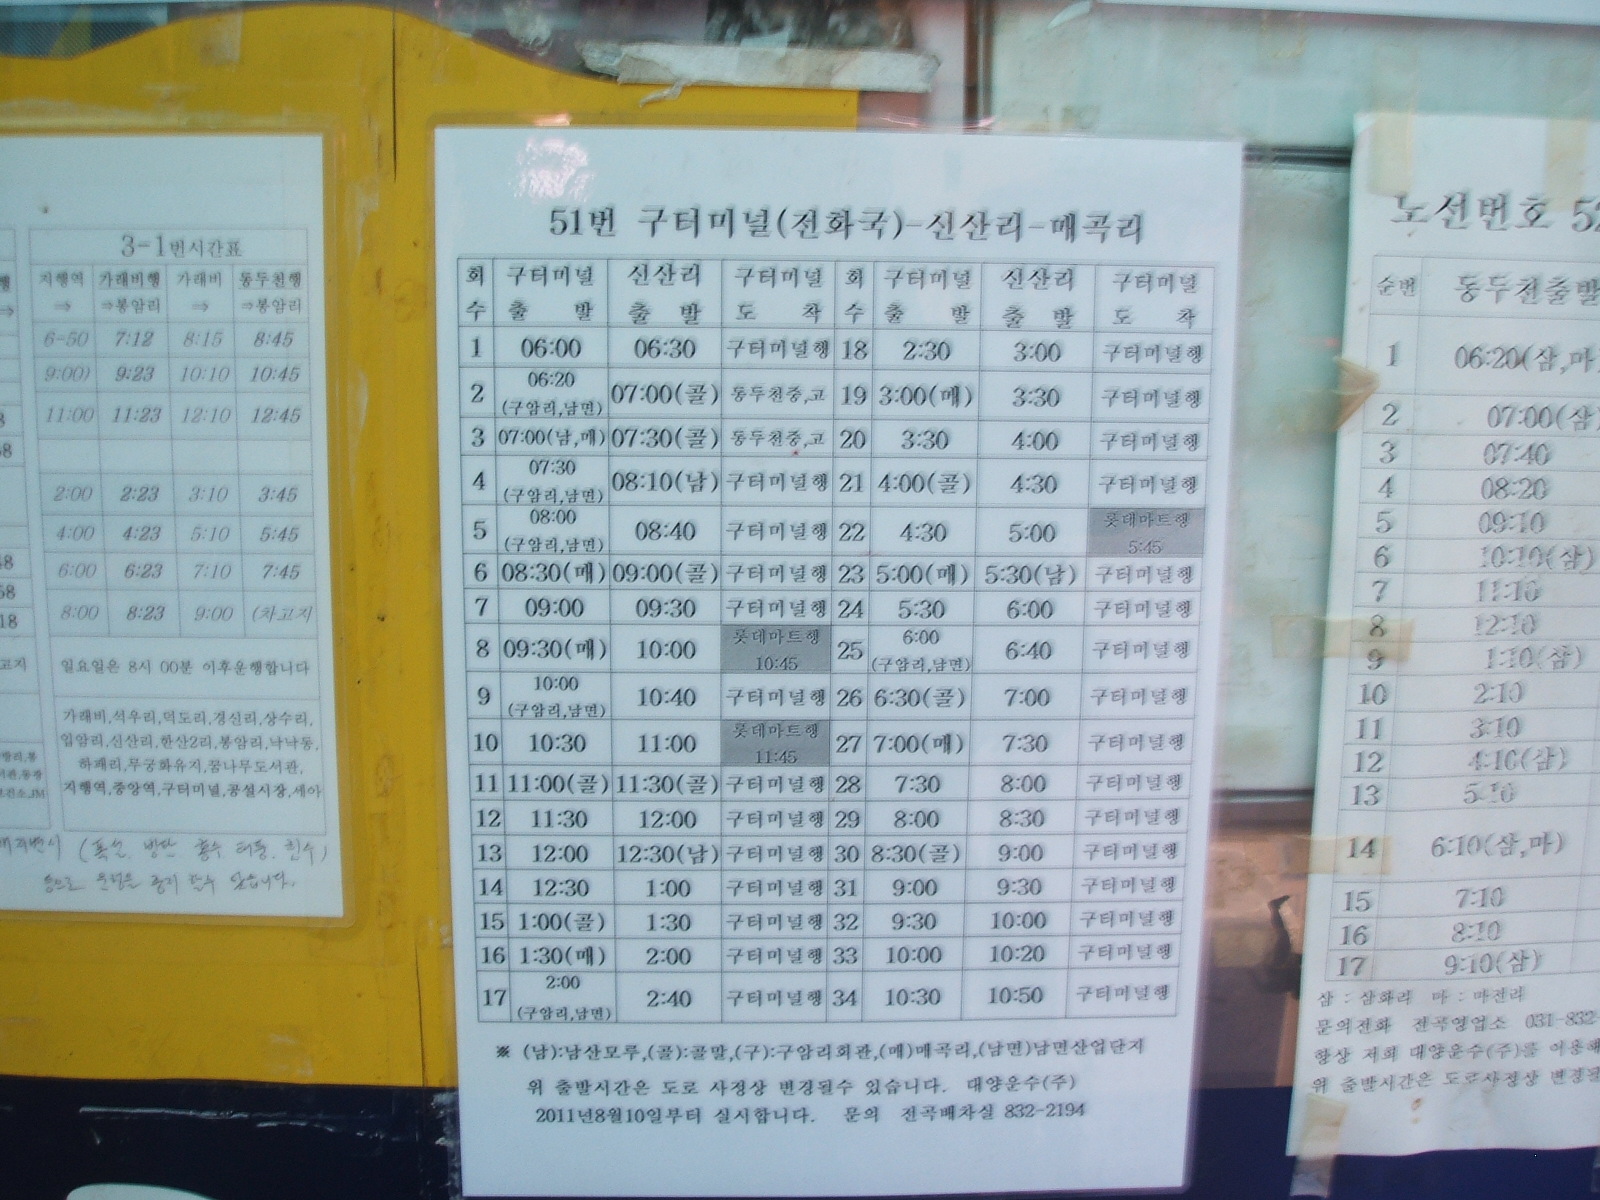 3-1번시간표
지행역 가래비행 가래비 동두천행
⇒ ⇒봉암리 ⇒ ⇒봉암리
6-50 7:12 8:15 8:45
9:00) 9:23 10:10 10:45
11:00 11:23 12:10 12:45
2:00 2:23 3:10 3:45
4:00 4:23 5:10 5:45
6:00 6:23 7:10 7:45
8:00 8:23 9:00 (차고지
일요일은 8시 00분 이후운행합니다
가래비,석우리,덕도리,경신리,상수리,
입암리,신산리,한산2리,봉암리,낙낙동,
하패리,무궁화유지,꿈나무도서관,
지행역,중앙역,구터미널,공설시장,세아
51번 구터미널(전화국)-신산리-매곡리
회 구터미널 신산리 구터미널 회 구터미널 신산리 구터미널
수 출 발 출 발 도 착 수 출 발 출 발 도 착
1 06:00 06:30 구터미널행 18 2:30 3:00 구터미널행
2 06:20 (구암리,남면) 07:00(골) 동두천중,고 19 3:00(매) 3:30 구터미널행
3 07:00(남,매) 07:30(골) 동두천중,고 20 3:30 4:00 구터미널행
4 07:30 (구암리,남면) 08:10(남) 구터미널행 21 4:00(골) 4:30 구터미널행
5 08:00 (구암리,남면) 08:40 구터미널행 22 4:30 5:00 롯데마트행 5:45
6 08:30(매) 09:00(골) 구터미널행 23 5:00(매) 5:30(남) 구터미널행
7 09:00 09:30 구터미널행 24 5:30 6:00 구터미널행
8 09:30(매) 10:00 롯데마트행 10:45 25 6:00 (구암리,남면) 6:40 구터미널행
9 10:00 (구암리,남면) 10:40 구터미널행 26 6:30(골) 7:00 구터미널행
10 10:30 11:00 롯데마트행 11:45 27 7:00(매) 7:30 구터미널행
11 11:00(골) 11:30(골) 구터미널행 28 7:30 8:00 구터미널행
12 11:30 12:00 구터미널행 29 8:00 8:30 구터미널행
13 12:00 12:30(남) 구터미널행 30 8:30(골) 9:00 구터미널행
14 12:30 1:00 구터미널행 31 9:00 9:30 구터미널행
15 1:00(골) 1:30 구터미널행 32 9:30 10:00 구터미널행
16 1:30(매) 2:00 구터미널행 33 10:00 10:20 구터미널행
17 2:00 (구암리,남면) 2:40 구터미널행 34 10:30 10:50 구터미널행
※ (남):남산모루,(골):골말,(구):구암리회관,(매)매곡리,(남면)남면산업단지
위 출발시간은 도로 사정상 변경될수 있습니다. 대양운수(주)
2011년8월10일부터 실시합니다. 문의 전곡배차실 832-2194
노선번호
순번 동두천출발
1 06:20(삼,마
2 07:00(삼)
3 07:40
4 08:20
5 09:10
6 10:10(삼)
7 11:10
8 12:10
9 1:10(삼)
10 2:10
11 3:10
12 4:10(삼)
13 5:10
14 6:10(삼,마)
15 7:10
16 8:10
17 9:10(삼)
삼 : 삼화리 마 : 마전리
문의전화 전곡영업소 031-832-
항상 저희 대양운수(주)를 이용해
위 출발시간은 도로사정상 변경될